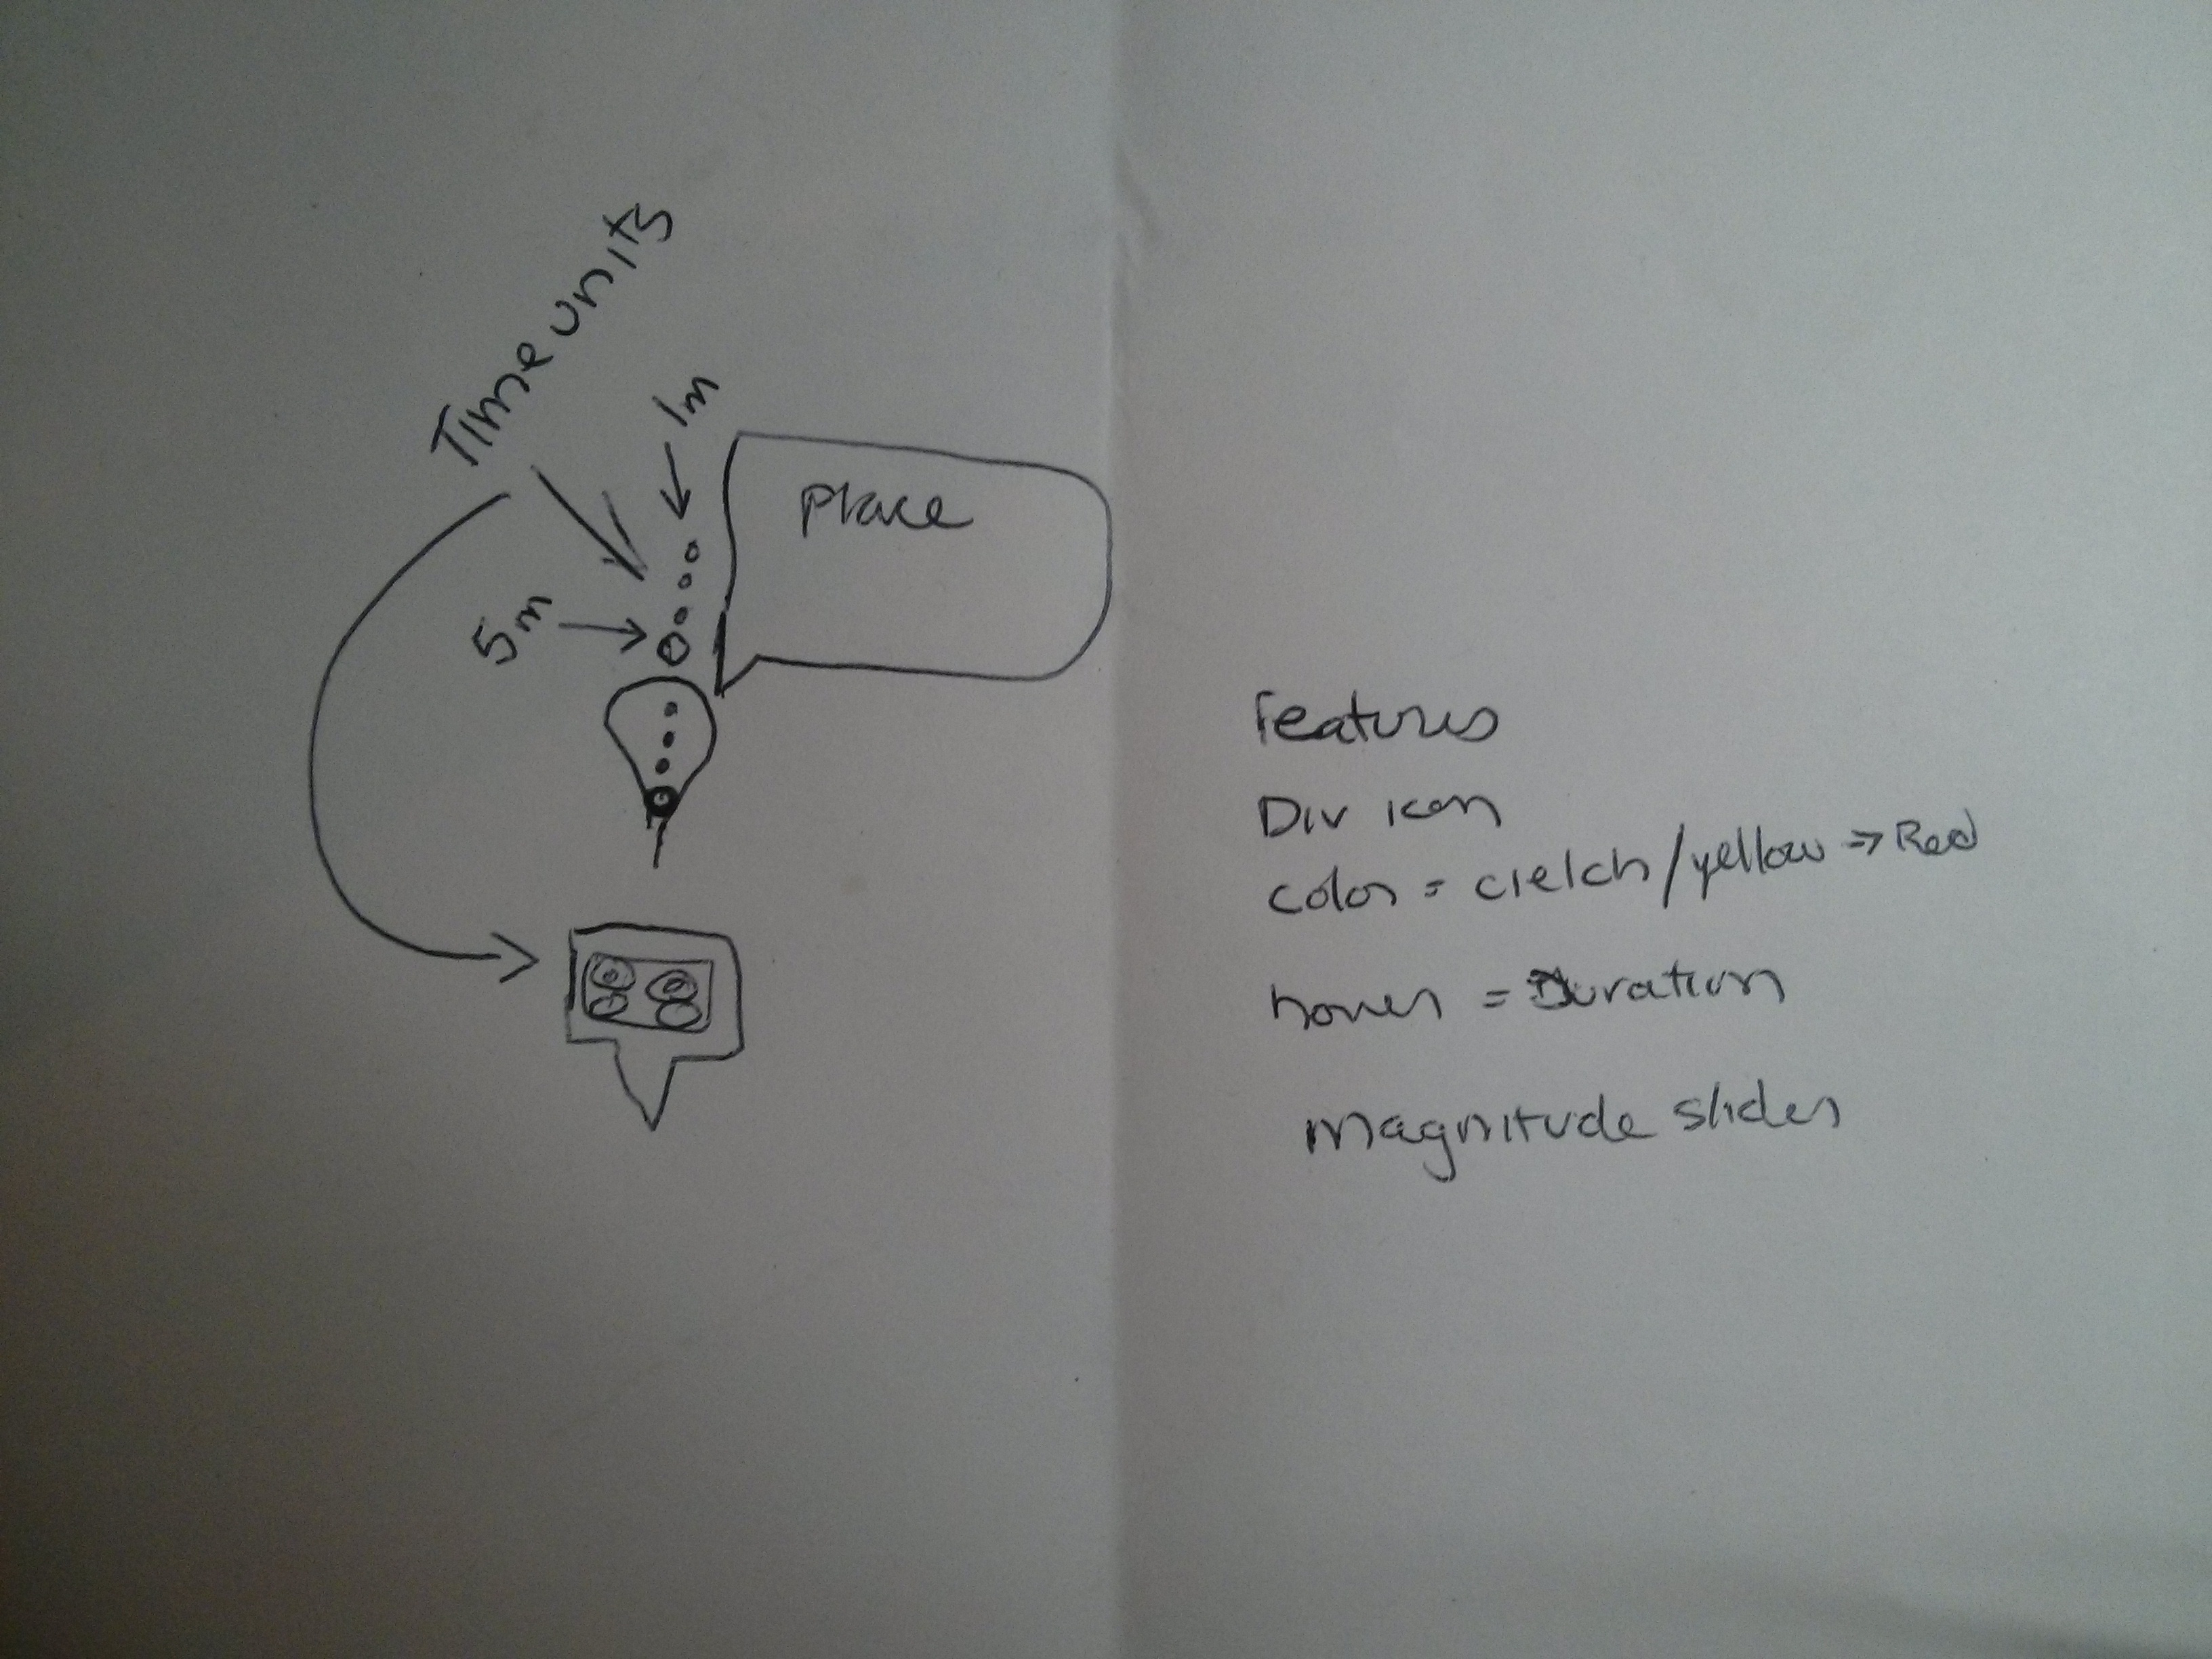 Time units
1m
Place
5m
Features
Div icon
color = / yellow => Red
hover = Duration
magnitude slider